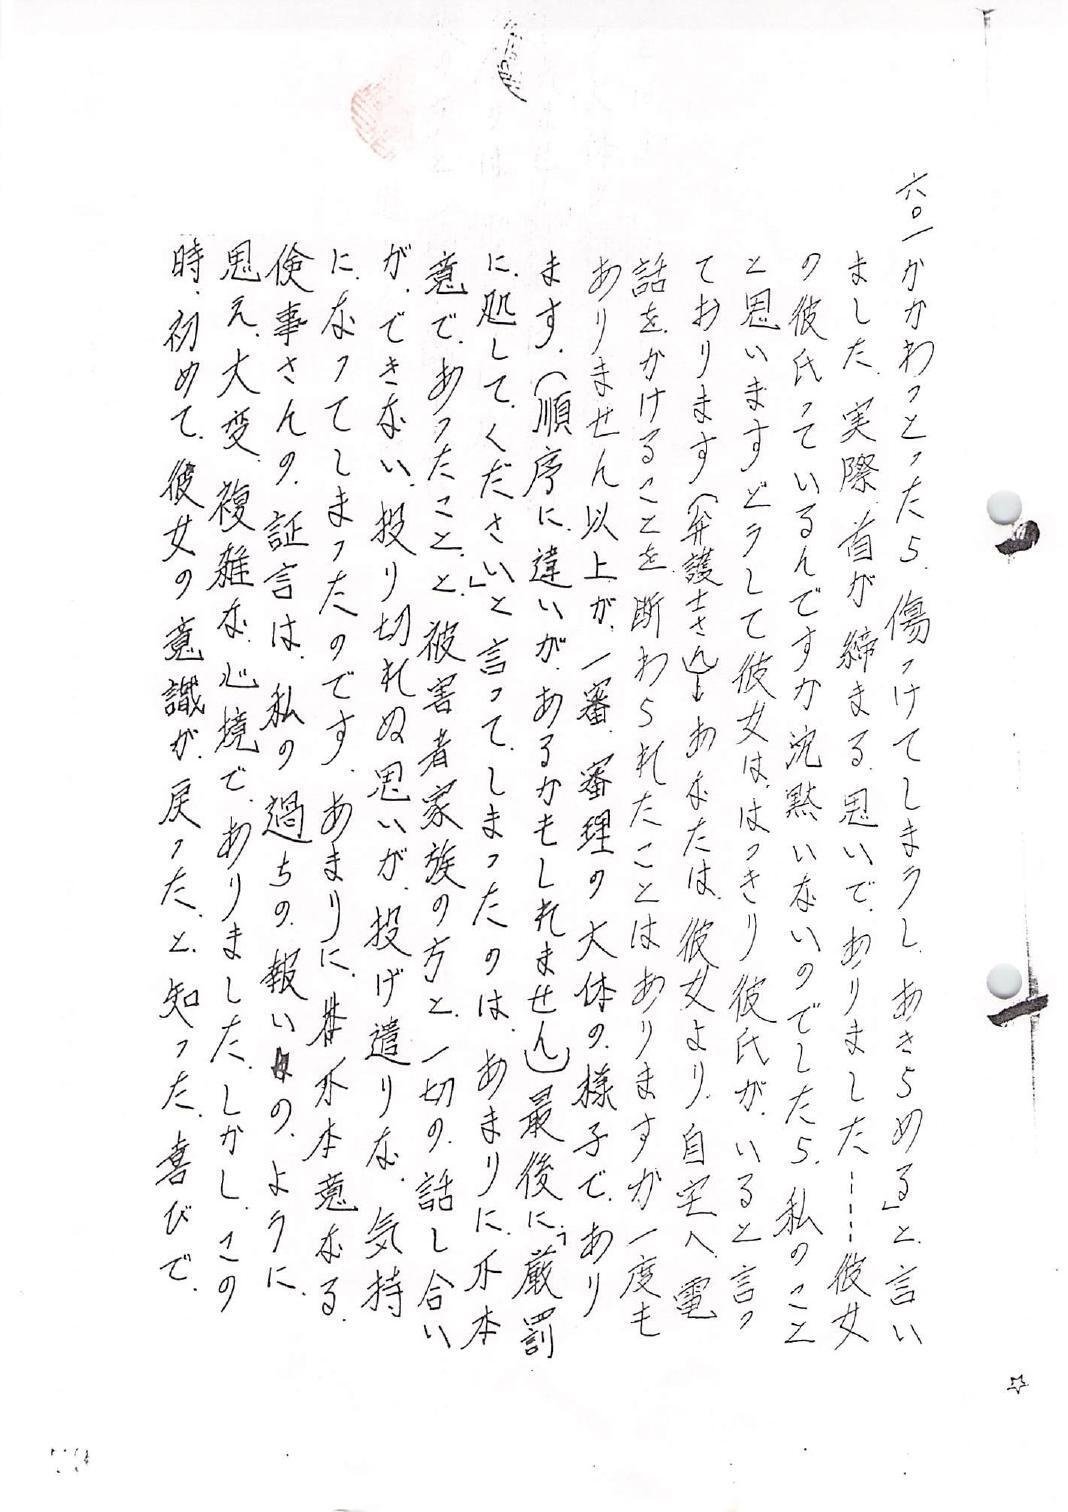 六〇一かかわっとったら、傷つけてしまうし、あきらめる」と、言い
ました、実際、首が締まる、思いで、ありました-----彼女
の彼氏っているんですか沈黙いないのでしたら、私のこと
と思いますどうして彼女は、はっきり彼氏が、いると言っ
ております(弁護士さん)→あなたは、彼女より、自宅へ、電
話を、かけることを、断わられたことはありますか一度も
ありません以上が、一審、審理の大体の、様子で、あり
ます、(順序に、違いが、あるかもしれません)最後に、「厳罰
に、処して、ください」と言って、しまったのは、あまりに、不本
意で、あったこと、と、被害者家族の方と、一切の、話し合い
が、できない、投り切れぬ思いが、投げ遣りな、気持
に、なってしまったのです、あまりに、不本意なる、
倹事さんの、証言は、私の過ちの、報いの、ように、
思え、大変、複雑な、心境で、ありました、しかし、この
時、初めて、彼女の意識が、戻った、と、知った、喜びで、
☆